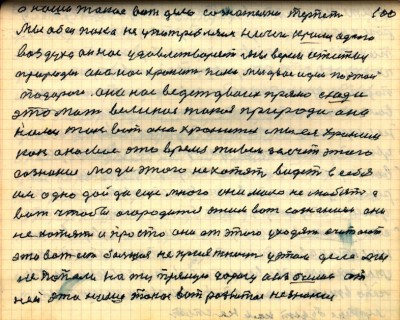 о наше такое вот дело сознательно терпеть 100
Мы оба пока не употребляем ничего кроме одного
воздуха он нас удовлетворяет мы верим этой
природы она нас хранит пока мы двое идем по этой
дороге. она нас ведет двоих прямо сюда
это такая природа она
нами так вот она хранится мы ее храним
как она нас это время живем за счет этого
сознания люди этого не хотят видеть в себе
им одно дай да еще много они мало не любят а
вот чтобы огородится этим вот сознанием они
не хотят и просто они от этого уходят считают
это вот не у этом деле мы
не попали на ту прямую дорогу а от
ней это наше такое вот развитое незнание